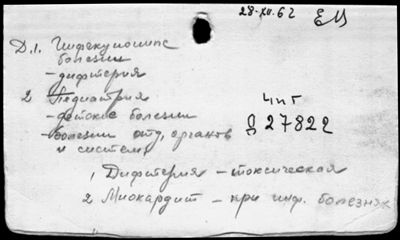 28-XII.62 ЕМ
Д.1. Инфекционные
болезни
- дифтерия
2 Педиатрия
- детские болезни
- болезни отд. органов
и систем
Чит
Д 27822
1 Дифтерия - токсическая
2 Миокардит - при инф. болезнях